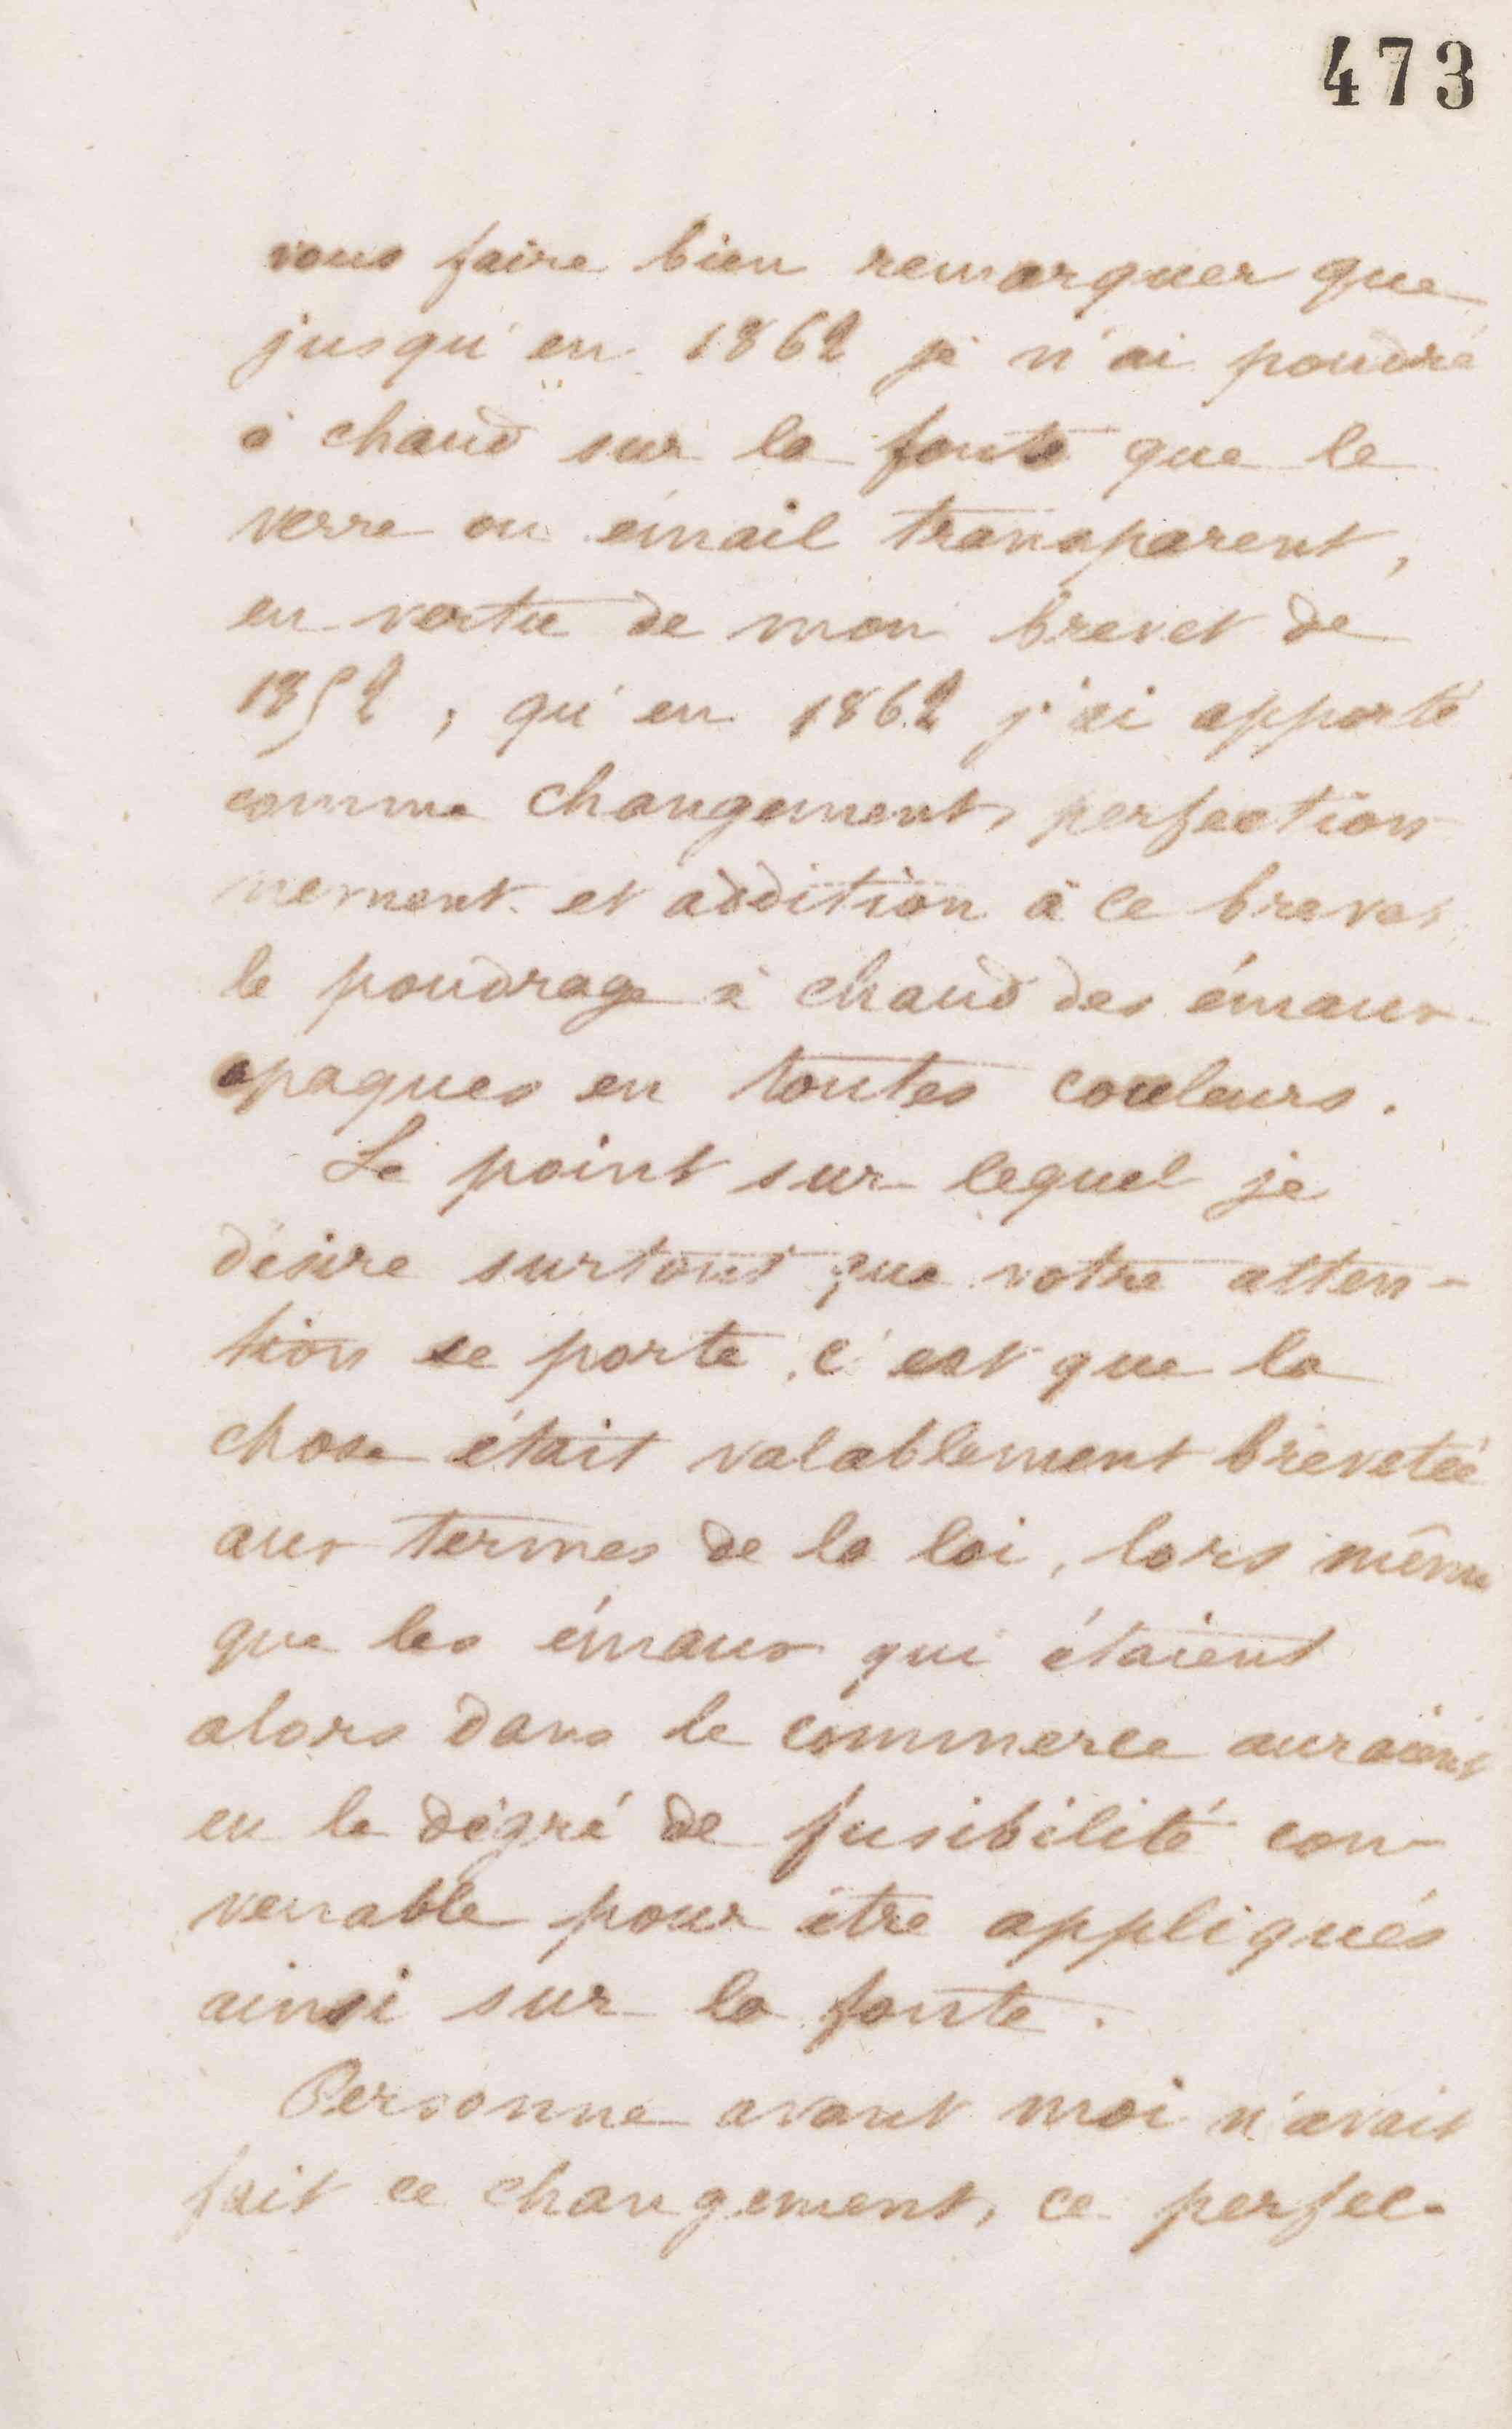 473
vous faire bien remarquer que
jusqu'en 1862 je n'ai poudré
à chaud sur la fonte que le
verre ou émail transparent,
en vertu de mon brevet de
1852, qu'en 1862 j'ai apporté
comme changement, perfection
nement et addition à ce brevet
le poudrage à chaud des émaux
opaques en toutes couleurs.
Le point sur lequel je
désire surtout que votre atten-
tion se porte, c'est que la
chose était valablement brevetée
aux termes de la loi, lors même
que les émaux qui étaient
alors dans le commerce auraient
eu le dégré de fusibilité con-
venable pour être appliqués
ainsi sur la fonte.
Personne avant moi n'avait
fait ce changement, ce perfec-